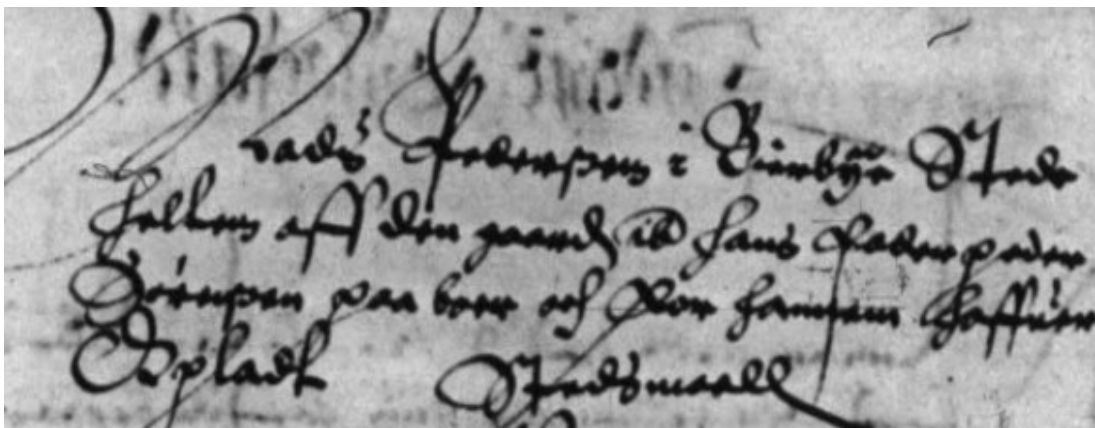 Mads Pedersen i Bierbye Stede
helten aff den gaard ibd hans fader peder
Sørensen paa boer och for hannem haffuer
Opladt Stedsmaall